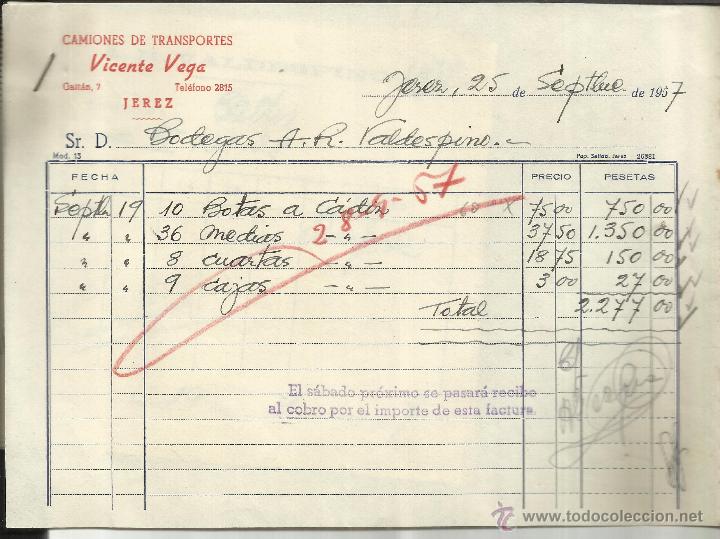 CAMIONES DE TRANSPORTES
Vicente Vega
Gaitán, 7 Teléfono 2815
JEREZ
Jerez, 25 de Septbre de 1957
Sr. D. Bodegas A. R. Valdespino.
Mod. 13 Pap. Sellaz. Jerez 26381
FECHA PRECIO PESETAS
Septb 19 10 Botas a Cádiz 75 00 750 00
" " 36 medias - " - 37 50 1.350 00
" " 8 cuartas - " - 18 75 150 00
" " 9 cajas - " - 3 00 27 00
Total 2.277 00
El sábado próximo se pasará recibo
al cobro por el importe de esta factura.
www.todocoleccion.net